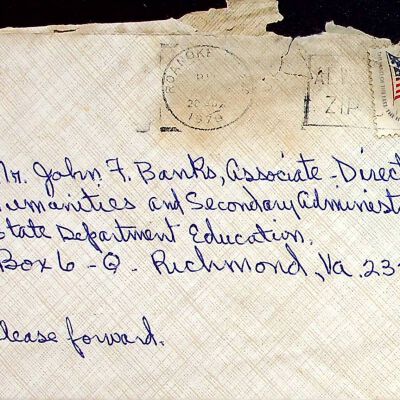 ROANOKE
PM
20
1979
ZIP
Mr. John F. Banks, Associate-Direct
umanities and Secondary Administ
State Department Education.
Box 6-Q- Richmond, Va. 232
lease forward.